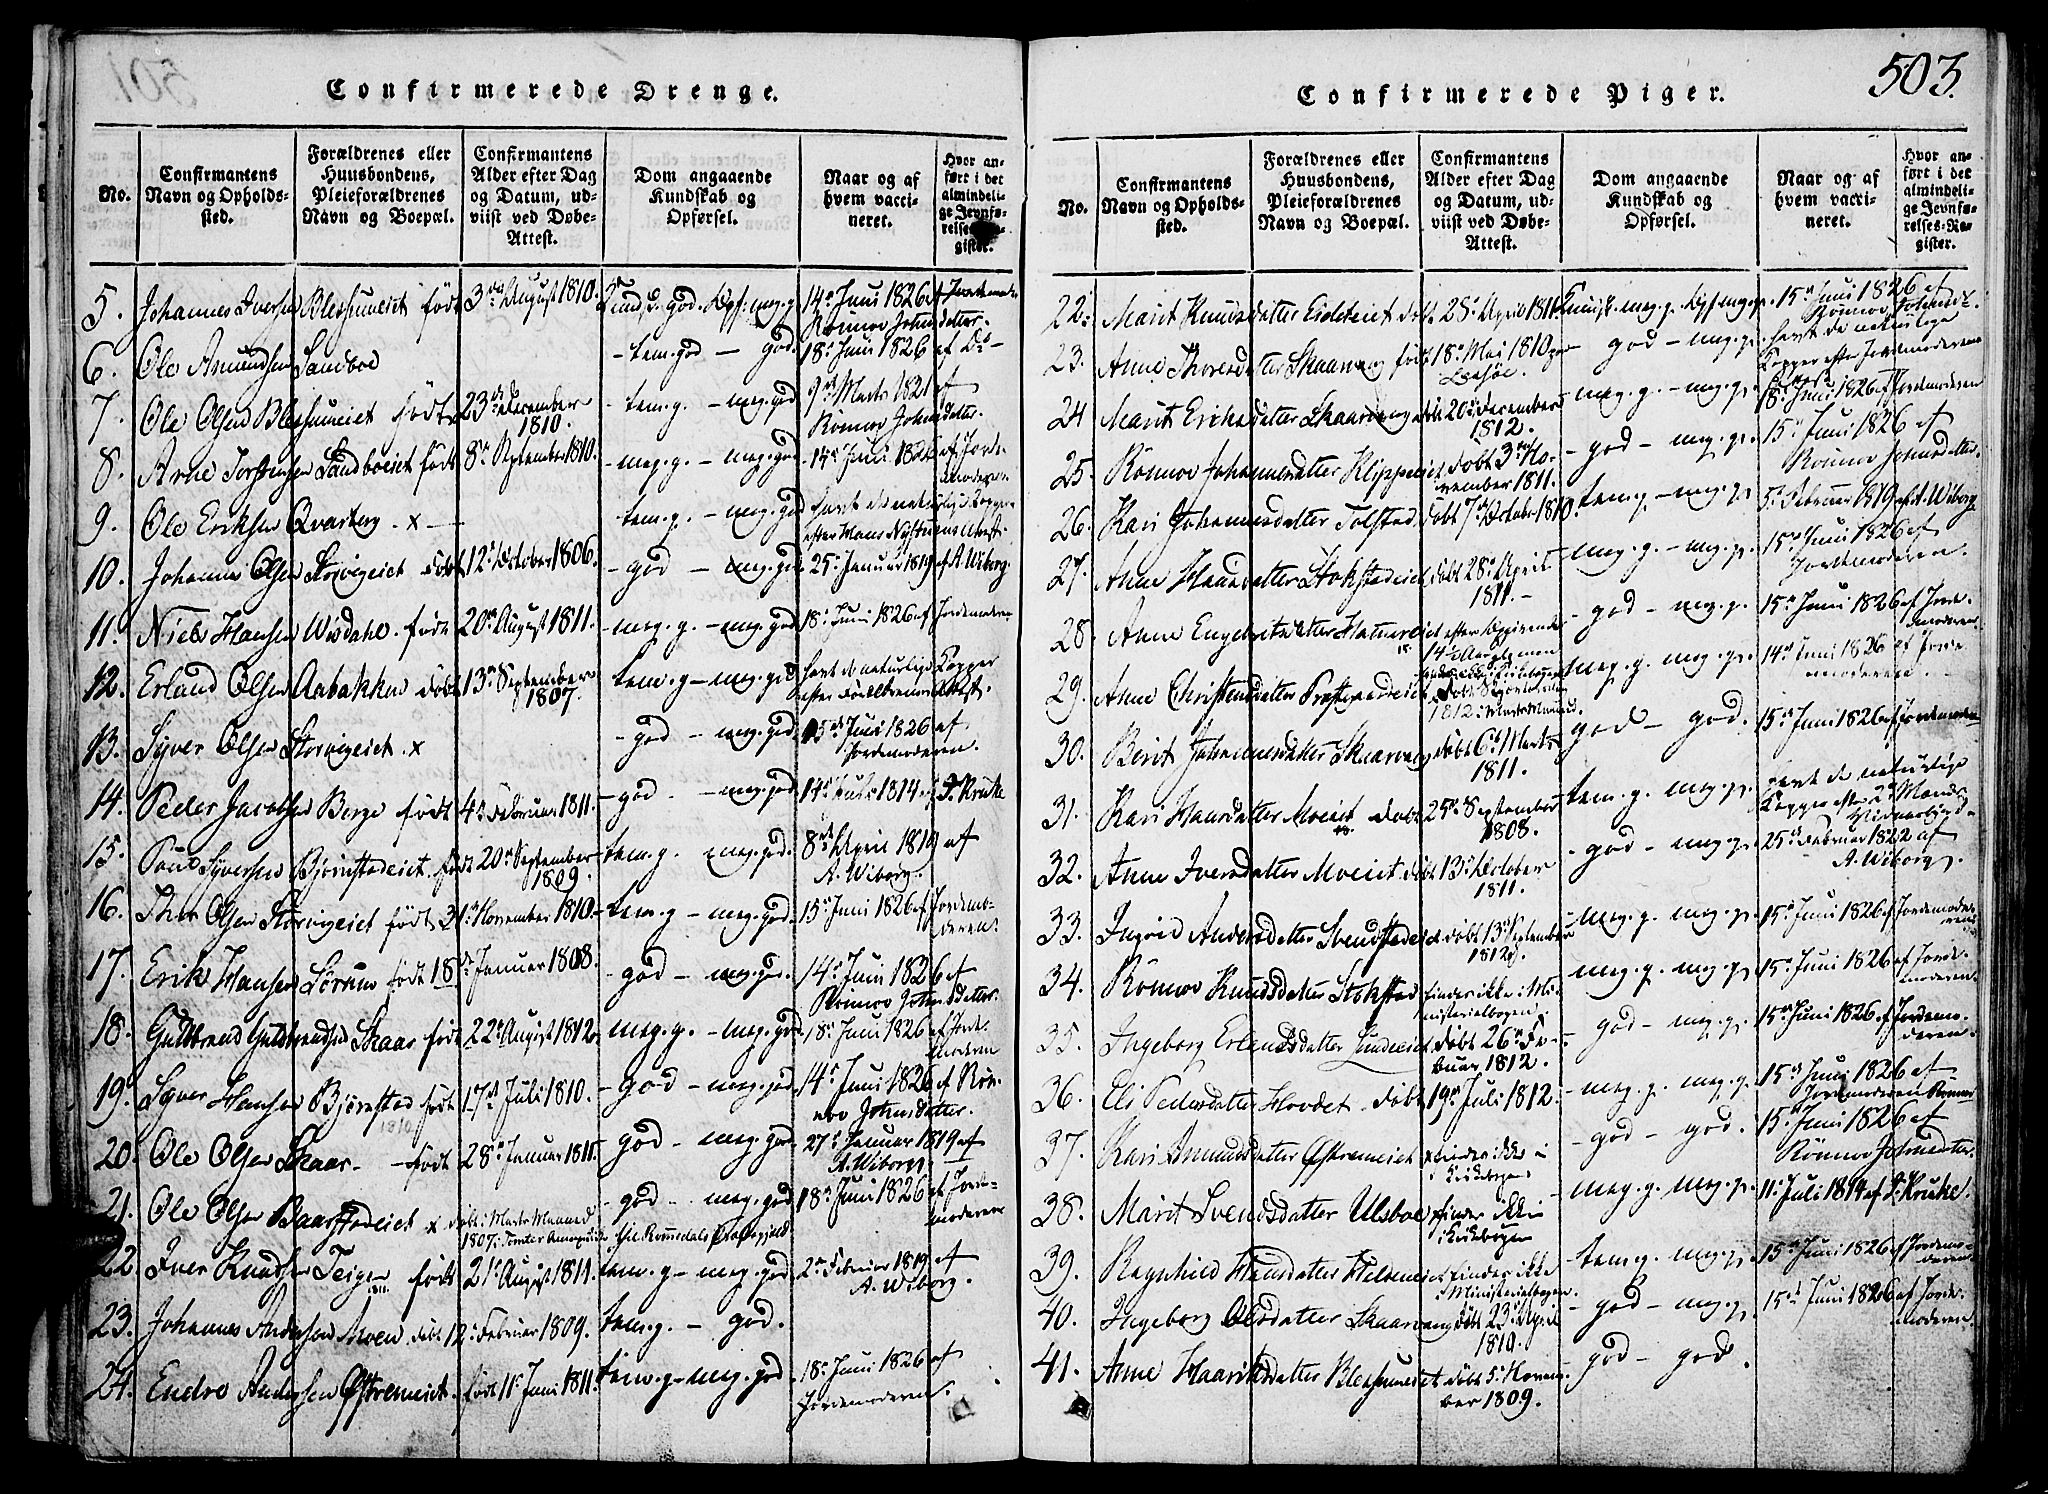 Confirmerede Drenge.
No.
Confirmantens Navn og Opholds-sted.
Forældrenes eller Huusbondens, Pleieforældrenes Navn og Boepæl.
Confirmantens Alder efter Dag og Datum, ud-viist ved Døbe-Attest.
Dom angaaende Kundskab og Opførsel.
Naar og af hvem vacci-neret.
Hvor an-ført i det almindeli-ge Jevnfø-relses-Re-gister.
5. Johannes Iversen Blessumeiet født 3die August 1810. god. 14de Juni 1826 af
Rønnov Johnsdatter.
6. Ole Amundsen Sandboe - tem. god - god. 18de Juni 1826 af Do -
7. Ole Olsen Blessumeiet født 23de December 1810. - tem. g. - meg. god 9de Marts 1821 af
Rønnov Johnsdatter.
8. Arne Torstensen Sandboeiet født 8de September 1810. - meg. g. - meg. god 14de Juni 1826 af Jorde-
moderen
9. Ole Eriksen Qvarberg. x - tem. g. - meg. god havt de naturlige Kopper
efter Attest.
10. Johannes Olsen Storvigeiet døbt 12te October 1806. - god - meg. god 25de Januar 1819 af A. Wiborg.
11. Niels Hansen Wisdahl. født 20de August 1811. - meg. g. - meg. god 18de Juni 1826 af Jordemoderen
12. Erland Olsen Aabakken døbt 13de September 1807. tem. g - meg. god havt de naturlige Kopper
efter Forældrenes Attest.
13. Syver Olsen Storvigeiet. x - god - meg. god 15de Juni 1826 af
Jordemoderen.
14. Peder Jacobsen Berge født 4de Februar 1811. - god - - meg. god 14de Juli 1814 af P. Kruke
15. Poul Syversen Bjørnstadeiet. født 20de September 1809. tem. g. meg. god. 8de April 1819 af
A. Wiborg.
16. Thor Olsen Storvigeiet født November 1810. - tem. g - meg. god. 15de Juni 1826 af Jordemo-
deren.
17. Erik Hansen Sørum født 18de Januar 1808. - god - meg. god. 14de Juni 1826 af
Rønnov Johnsdatter.
18. Guldbrand Guldbrandsen Skaar født 22de August 1812 - meg. g. - meg. god 18de Juni 1826 af Jorde-
moderen
19. Syver Hansen Bjørnstad født 17de Juli 1810. - god - meg. god. 14de Juni 1826 af Røn-
nov Johnsdatter.
20. Ole Olsen Skaar - født 28de Januar 1811. god - meg. god. 27de Januar 1819 af
A. Wiborg.
21. Ole Olsen Baarstadeiet x døbt i Marts Maaned
1807 i - god - meg. god 18de Juni 1826 af Jorde-
moderen
22. Iver Knudsen Teigen født 21de August 1811. tem. g - meg. god 2de Februar 1819 af
A. Wiborg.
23. Johannes Andersen Moen døbt 12te Februar 1809. tem. g. - god.
24. Endre Andersen Øfstremeiet. født 11te Juni 1811. tem. g - meg. god. 18de Juni 1826 af
Jordemoderen.
Confirmerede Piger.
503.
No.
Confirmantens Navn og Opholds-sted.
Forældrenes eller Huusbondens, Pleieforældrenes Navn og Boepæl.
Confirmantens Alder efter Dag og Datum, ud-viist ved Døbe-Attest.
Dom angaaende Kundskab og Opførsel.
Naar og af hvem vacci-neret.
Hvor an-ført i det almindeli-ge Jevnfø-relses-Re-gister.
22. Marit Knudsdatter døbt 28de April 1811. meg. g. 15de Juni 1826 af
Rønnov Johnsd.
23. Anne Thoresdatter Skaarvang født 18de Mai 1810 - god - meg. g. havt de naturlige
Kopper efter Jordemoderens
24. Marit Eriksdatter Skaarvang døbt 20de December 1812. meg. g. - meg. g. 18de Juni 1826 af Jordemoderen
25. Rønnov Johannesdatter Klippeneiet døbt 3die No-
vember 1811. - god - meg. g. 15de Juni 1826 af
Rønnov Johnsdatter
26. Kari Johannesdatter Tolstad døbt 7de October 1810. tem. g. - meg. g. 5te Februar 1819 af A. Wiborg
27. Anne Hansdatter Stokstadeiet døbt 28de April 1811. - meg. g. - meg. g. 15de Juni 1826 af
Jordemoderen.
28. Anne Engebretsdatter - god - meg. g. 15de Juni 1826 af Jorde-
moderen.
29. Anne Christensdatter døbt
1812 i Marts Maaned. meg. g. meg. g. 14de Juni 1826 af Jorde-
moderen.
30. Berit Johannesdatter Skaarvang døbt 6te Marts 1811. god - god. 15de Juni 1826 af Jordemoderen
31. Kari Hansdatter Moeiet døbt 25de September 1808. tem. g. meg. g. havt de naturlige
Kopper efter 2de Mænds
Vidnesbyrd.
32. Anne Iversdatter Moeiet døbt 13de October 1811. - god - meg. g. 25de Februar 1822 af
A. Wiborg.
33. Ingrid Andersdatter døbt 13de September 1812. - meg. g. meg. g. 15de Juni 1826 af Jordemode-
ren
34. Rønnov Knudsdatter Stokstad findes ikke i Mi-
nisterialbogen. meg. g. meg. g. 15de Juni 1826 af Jorde-
moderen.
35. Ingeborg Erlandsdatter Sundeeiet døbt 26de Fe-
bruar 1812. - god - meg. g. 15de Juni 1826 af Jordemo-
deren.
36. Eli Pedersdatter Hovdet. døbt 19de Juli 1812. - meg. g. meg. g. 15de Juni 1826 af
Jordemoderen
37. Kari Amundsdatter Øfstremeiet findes ikke i
Kirkebogen - god - god. 15de Juni 1826 af
Rønnov Johnsdatter.
38. Marit Svendsdatter Ulsboe findes ikke
i Kirkebogen - meg. g. meg. g. 11te Juli 1814 af P. Kruke.
39. Ragnhild Hansdatter findes ikke
i Ministerialbogen. tem. g. meg. g. 15de Juni 1826 af Jordemo-
deren.
40. Ingeborg Olsdatter Skaarvang døbt 23de April 1810. - god - meg. g. 15de Juni 1826 af Jorde-
moderen.
41. Anne Haavelsdatter Blessumeiet døbt 5te Novem-
ber 1809. god - god.